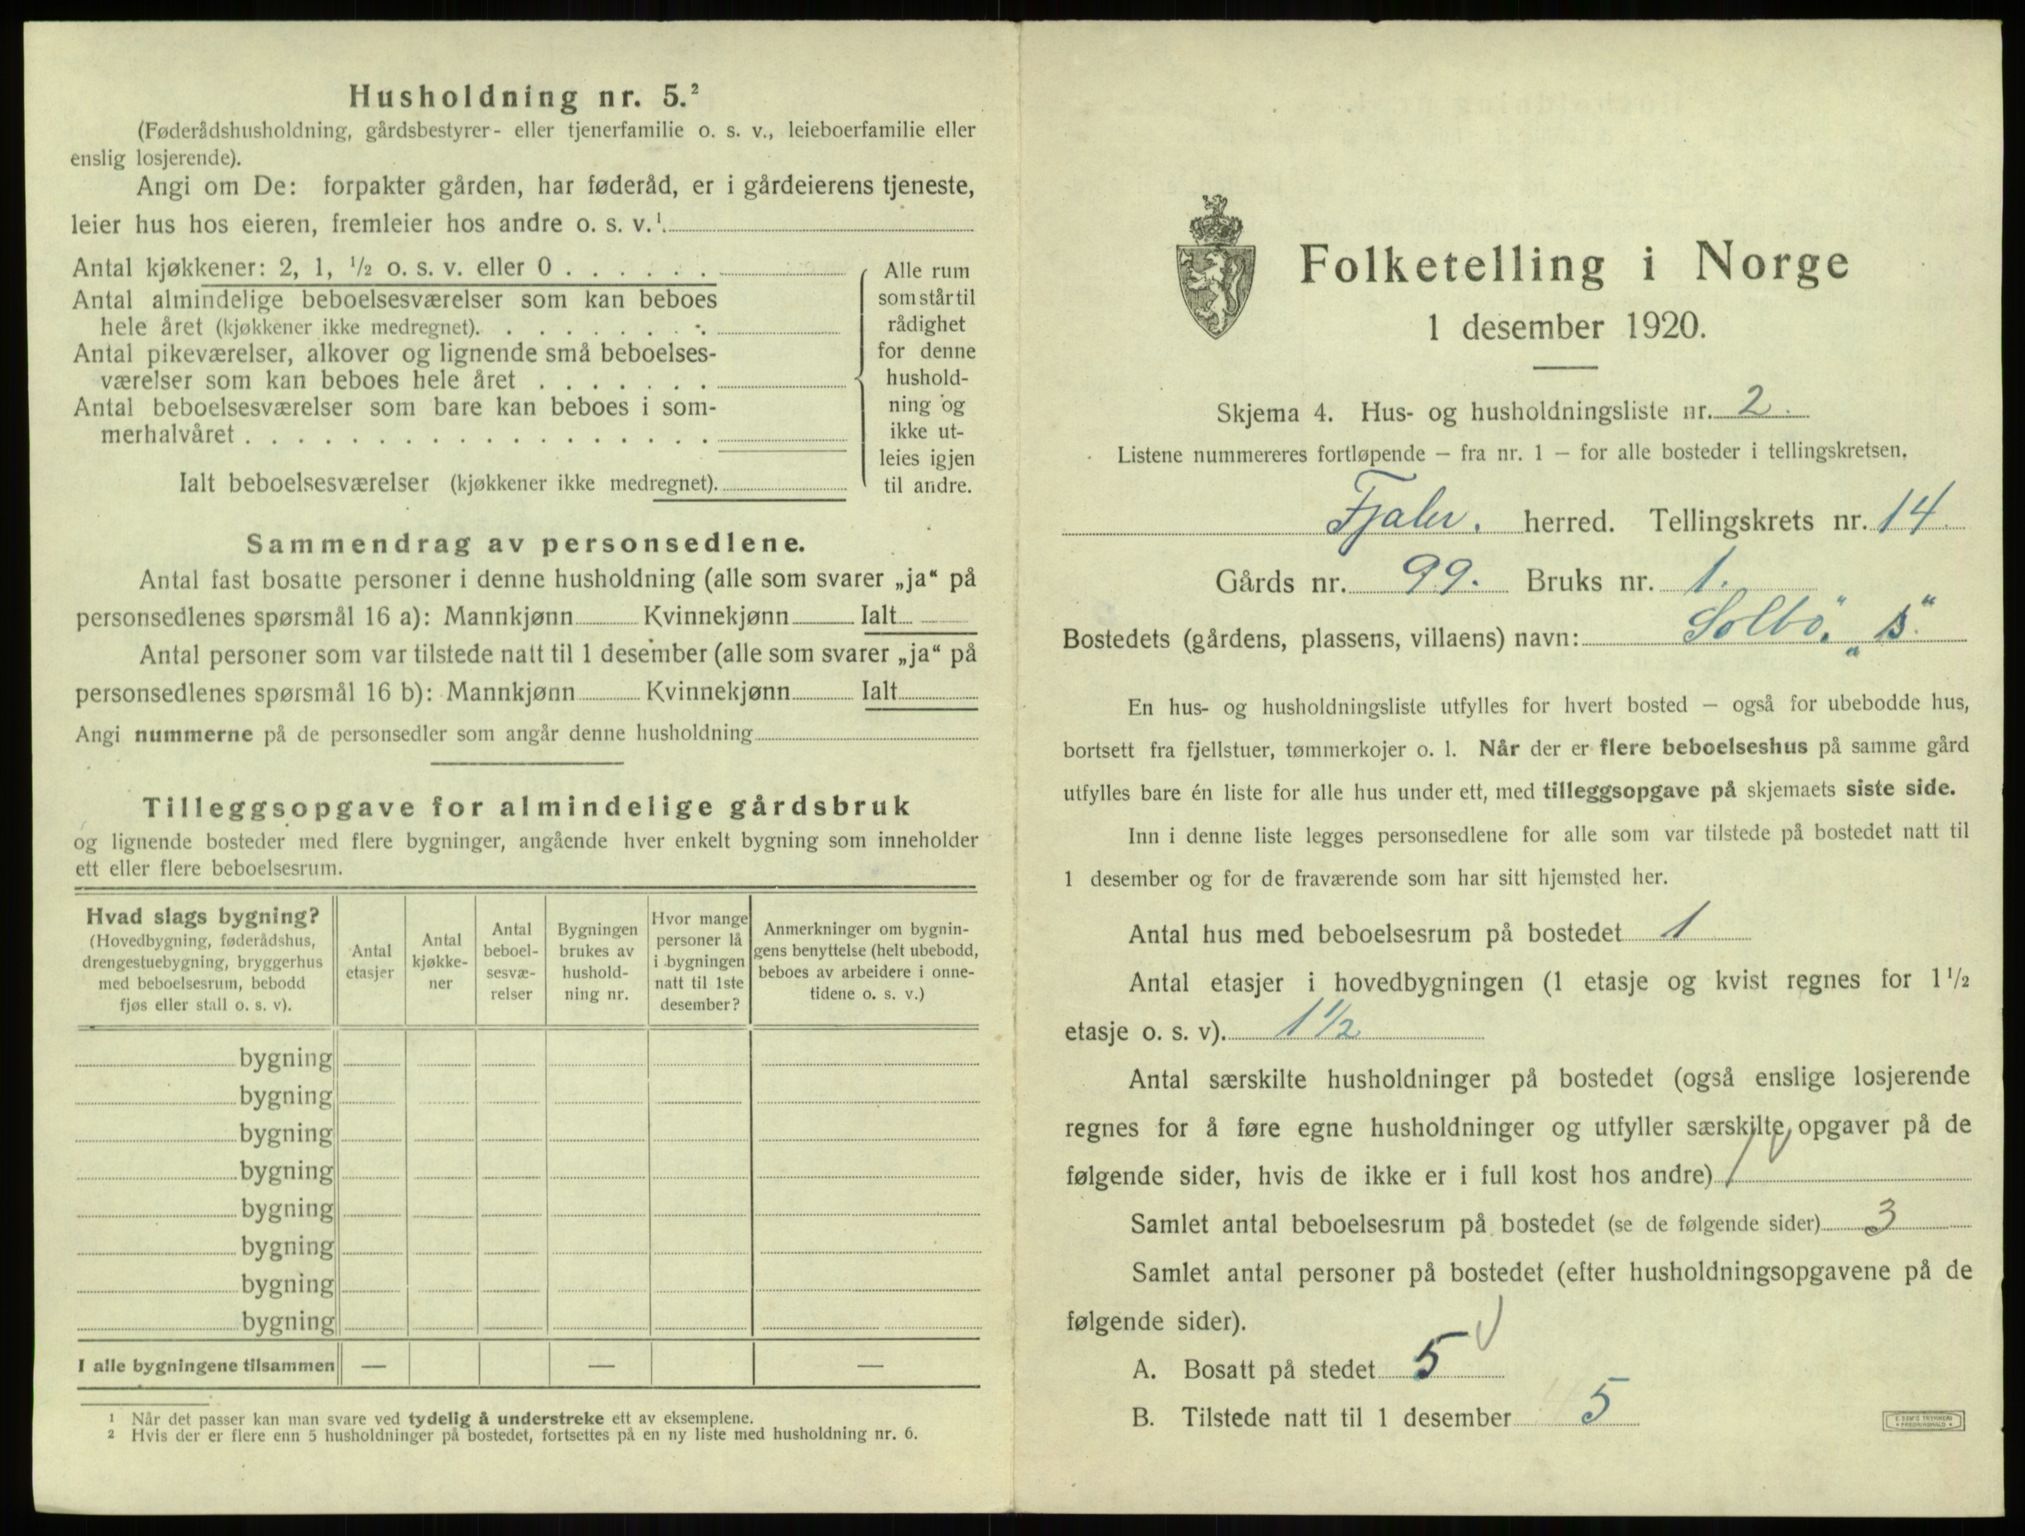 Husholdning nr. 5.²
(Føderådshusholdning, gårdsbestyrer- eller tjenerfamilie o. s. v., leieboerfamilie eller
enslig losjerende).
Angi om De: forpakter gården, har føderåd, er i gårdeierens tjeneste,
leier hus hos eieren, fremleier hos andre o. s. v.¹
Antal kjøkkener: 2, 1, ½ o. s. v. eller 0
Antal almindelige beboelsesværelser som kan beboes
hele året (kjøkkener ikke medregnet).
Antal pikeværelser, alkover og lignende små beboelses-
værelser som kan beboes hele året
Antal beboelsesværelser som bare kan beboes i som-
merhalvåret
Ialt beboelsesværelser (kjøkkener ikke medregnet).
Alle rum
som står til
rådighet
for denne
hushold-
ning og
ikke ut-
leies igjen
til andre.
Sammendrag av personsedlene.
Antal fast bosatte personer i denne husholdning (alle som svarer „ja“ på
personsedlenes spørsmål 16 a): Mannkjønn Kvinnekjønn Ialt
Antal personer som var tilstede natt til 1 desember (alle som svarer „ja“ på
personsedlenes spørsmål 16 b): Mannkjønn Kvinnekjønn Ialt
Angi nummerne på de personsedler som angår denne husholdning
Tilleggsopgave for almindelige gårdsbruk
og lignende bosteder med flere bygninger, angående hver enkelt bygning som inneholder
ett eller flere beboelsesrum.
Hvad slags bygning?
(Hovedbygning, føderådshus,
drengestuebygning, bryggerhus
med beboelsesrum, bebodd
fjøs eller stall o. s. v).
Antal
etasjer
Antal
kjøkke-
ner
Antal
beboel-
sesvæ-
relser
Bygningen
brukes av
hushold-
ning nr.
Hvor mange
personer lå
i bygningen
natt til 1ste
desember?
Anmerkninger om bygnin-
gens benyttelse (helt ubebodd,
beboes av arbeidere i onne-
tidene o. s. v.)
bygning
bygning
bygning
bygning
bygning
bygning
bygning
bygning
I alle bygningene tilsammen — — —
¹ Når det passer kan man svare ved tydelig å understreke ett av eksemplene.
² Hvis der er flere enn 5 husholdninger på bostedet, fortsettes på en ny liste med husholdning nr. 6.
Folketelling i Norge
1 desember 1920.
Skjema 4. Hus- og husholdningsliste nr. 2.
Listene nummereres fortløpende — fra nr. 1 — for alle bosteder i tellingskretsen.
Fjaler. herred. Tellingskrets nr. 14
Gårds nr. 99. Bruks nr. 1.
Bostedets (gårdens, plassens, villaens) navn: Solbö. „s“
En hus- og husholdningsliste utfylles for hvert bosted — også for ubebodde hus,
bortsett fra fjellstuer, tømmerkojer o. l. Når der er flere beboelseshus på samme gård
utfylles bare én liste for alle hus under ett, med tilleggsopgave på skjemaets siste side.
Inn i denne liste legges personsedlene for alle som var tilstede på bostedet natt til
1 desember og for de fraværende som har sitt hjemsted her.
Antal hus med beboelsesrum på bostedet 1
Antal etasjer i hovedbygningen (1 etasje og kvist regnes for 1 ½
etasje o. s. v). 1½
Antal særskilte husholdninger på bostedet (også enslige losjerende
regnes for å føre egne husholdninger og utfyller særskilte opgaver på de
følgende sider, hvis de ikke er i full kost hos andre) 1
Samlet antal beboelsesrum på bostedet (se de følgende sider) 3
Samlet antal personer på bostedet (efter husholdningsopgavene på de
følgende sider).
A. Bosatt på stedet 5
B. Tilstede natt til 1 desember 5